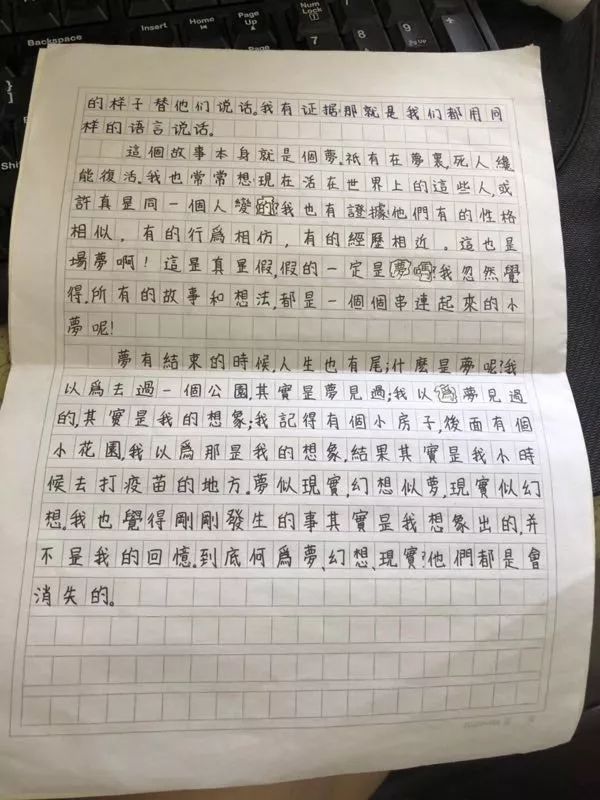 Backspace
Home
Page Up
Num Lock
7
8
9
PgUp
Shift
的样子替他们说话。我有证据那就是我们都用同
样的语言说话。
這個故事本身就是個夢.祇有在夢裏,死人纔
能復活.我也常常想現在活在世界上的這些人,或
許真是同一個人變的我也有證據他們有的性格
相似，有的行爲相仿，有的經歷相近。這也是
場夢啊！這是真是假,假的一定是夢嗎?我忽然覺
得,所有的故事和想法,都是一個個串連起來的小
夢呢!
夢有結束的時候,人生也有尾;什麽是夢呢?我
以爲去過一個公園,其實是夢見過;我以爲夢見過
的,其實是我的想象;我記得有個小房子,後面有個
小花園,我以爲那是我的想象,結果其實是我小時
候去打疫苗的地方.夢似現實,幻想似夢,現實似幻
想.我也覺得剛剛發生的事其實是我想象出的,并
不是我的回憶.到底何爲夢、幻想、現實?他們都是會
消失的。